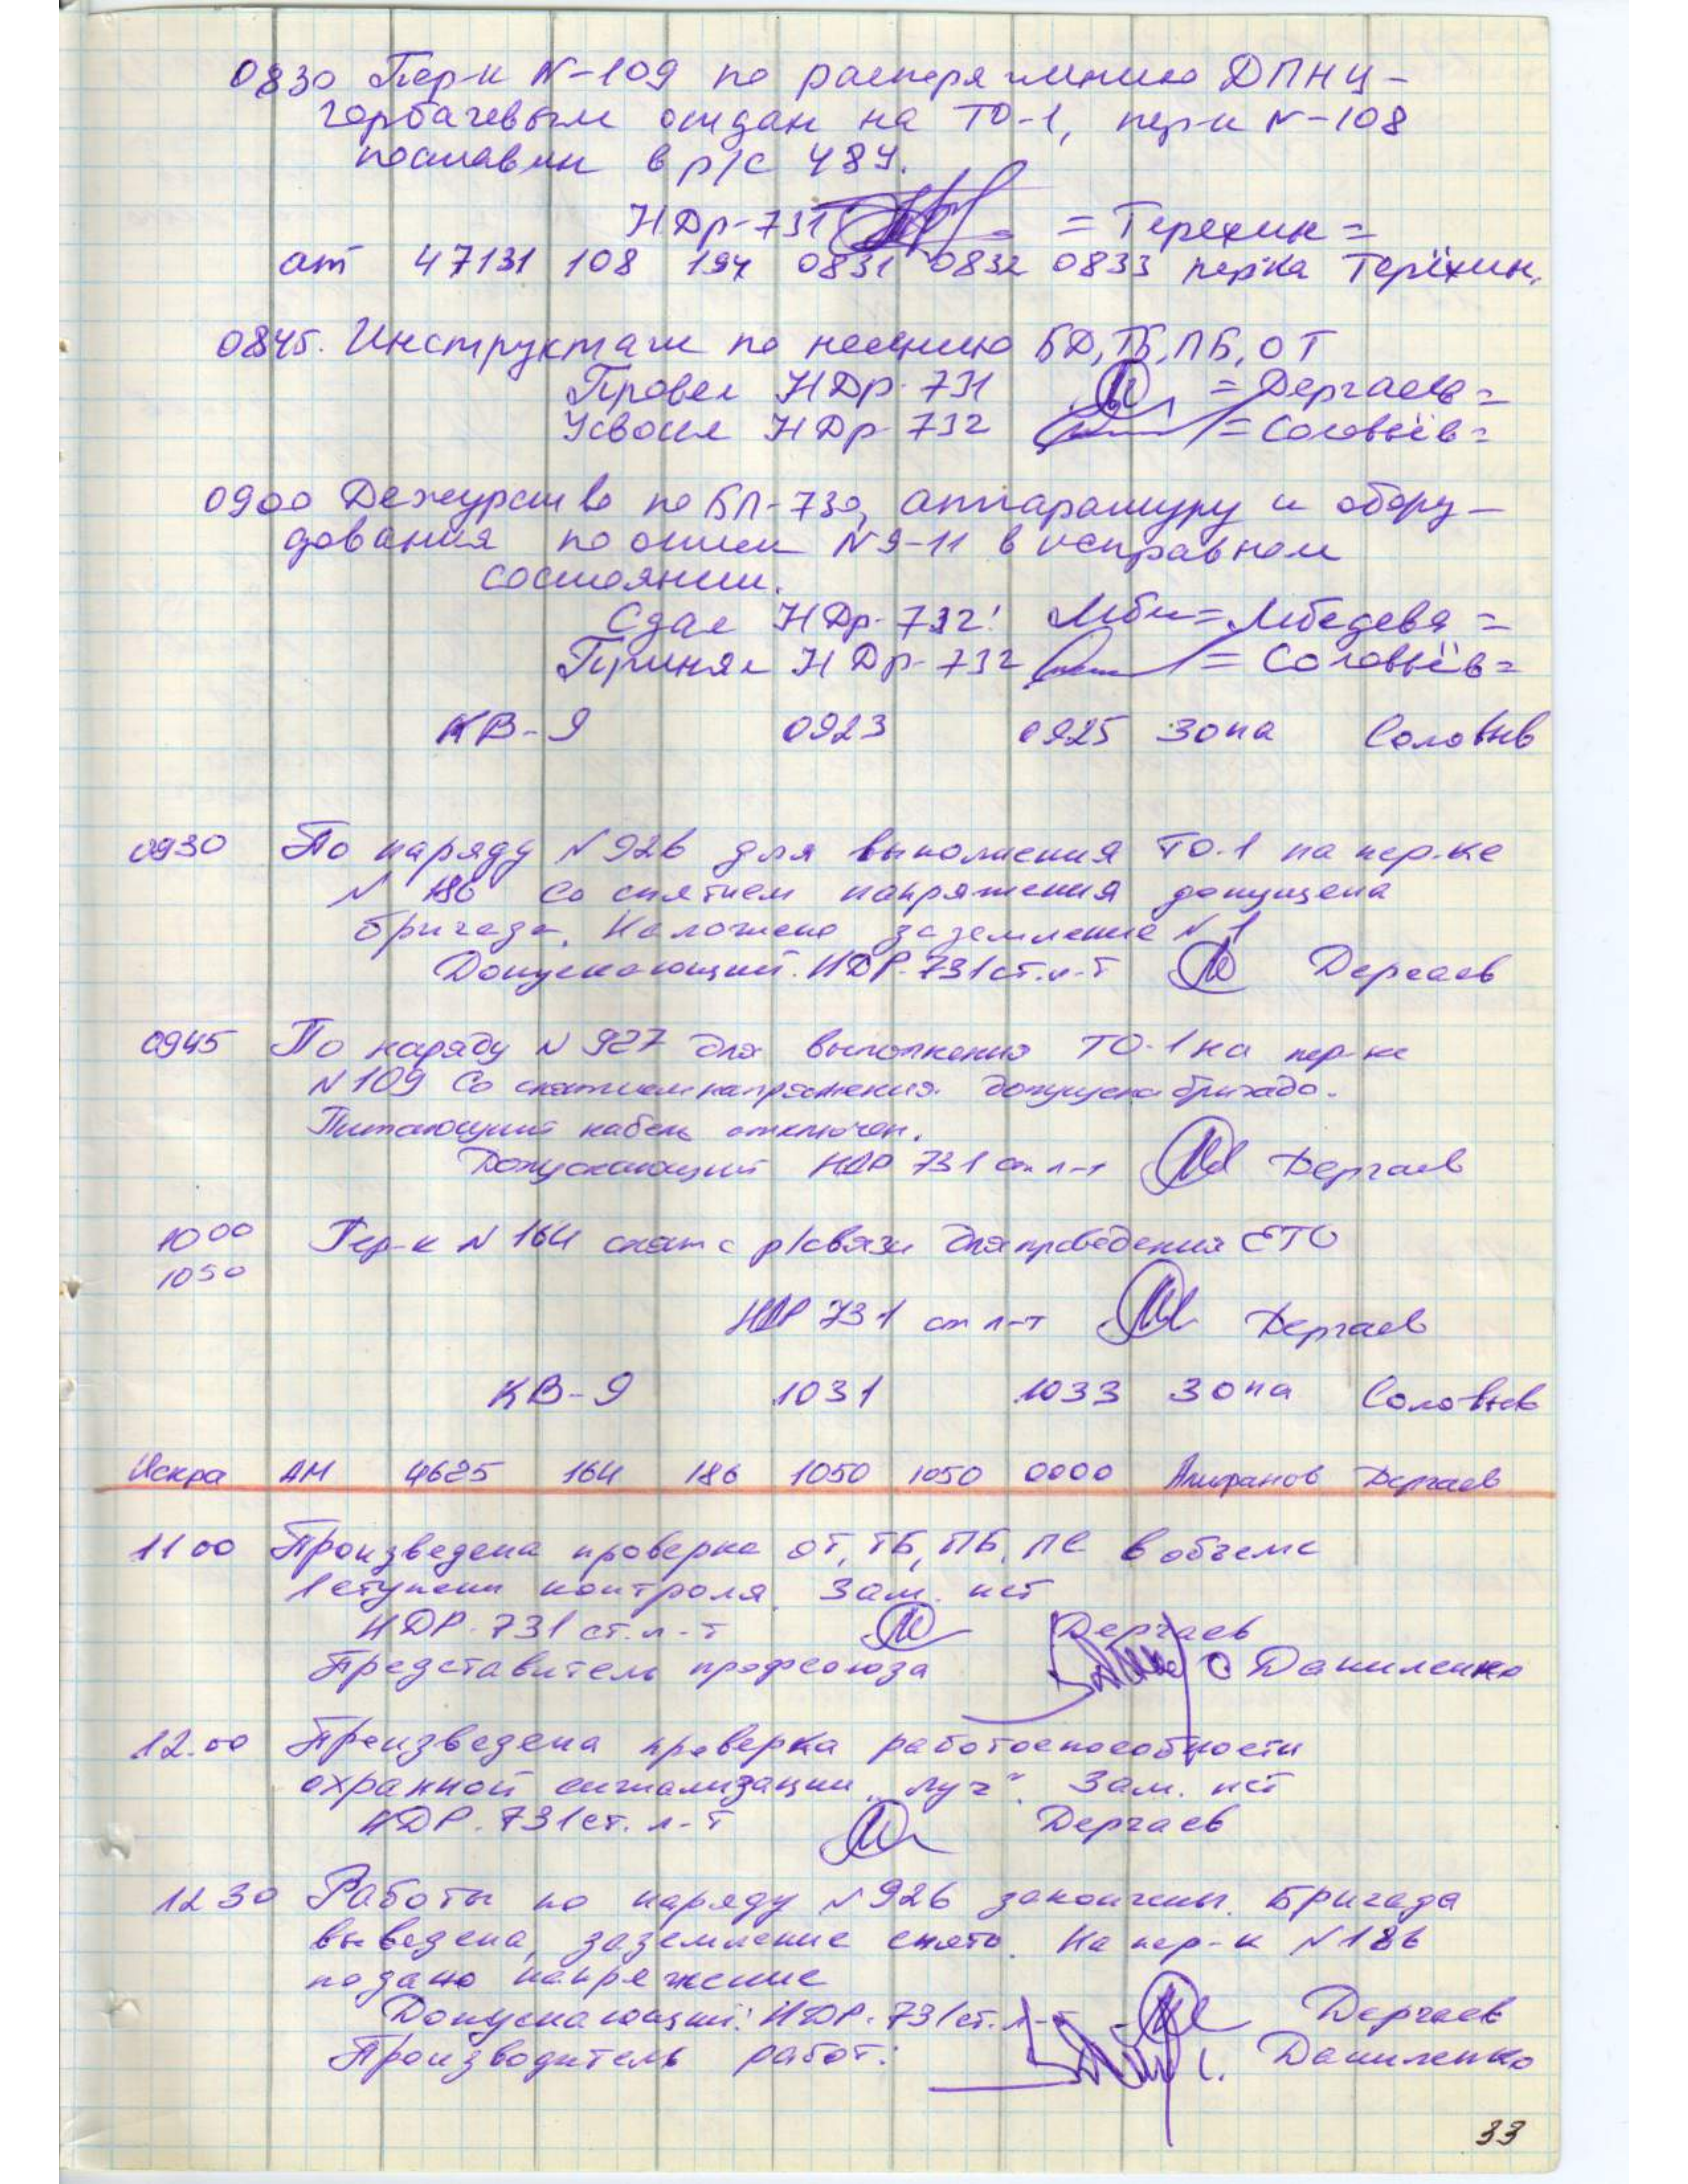 0830 Пер-к N-109 по распоряжению ДПНЦ-
горбачевым отдан на ТО-1, пер-к N-108
поставлен в р/с 484.
НДр-731 = Терехин =
ат 47131 108 194 0831 0832 0833 пер-ка Терёхин.
0845. Инструктаж по несению БД, ТБ, ПБ, ОТ
Провел НДр-731 = Дергаев =
Усвоил НДр-732 = Соловьёв =
0900 Дежурство по БП-730, аппаратуру и обору-
дования по описи N9-11 в исправном
состоянии.
Сдал НДр-732: = Лебедева =
Принял НДр-732 = Соловьёв =
КВ-9 0923 0925 зона Соловьев
0930 По наряду N926 для выполнения ТО-1 на пер-ке
N 186 со снятием напряжения допущена
бригада. Наложено заземление N1
Допускающий: НДР-731 ст. л-т Дергаев
0945 По наряду N 927 для выполнения ТО-1 на пер-ке
N109 со снятием напряжения допущена бригада.
Питающий кабель отключен.
Допускающий НДР 731 ст л-т Дергаев
1000 Пер-к N 164 снят с р/связи для проведения ЕТО
1050
НДР 731 ст л-т Дергаев
КВ-9 1031 1033 зона Соловьев
Искра АМ 4625 164 186 1050 1050 0000 Дергаев
1100 Произведена проверка ОТ, ТБ, ПБ, ПС в объеме
1 ступени контроля. Зам. нет
НДР-731 ст. л-т Дергаев
Представитель профсоюза Даниленко
12.00 Произведена проверка работоспособности
охранной сигнализации „Луч". Зам. нет
НДР-731 ст. л-т Дергаев
1230 Работы по наряду N926 закончены. Бригада
выведена, заземление снято. На пер-к N186
подано напряжение
Допускающий: НДР-731 ст. л-т Дергаев
Производитель работ: Даниленко
33